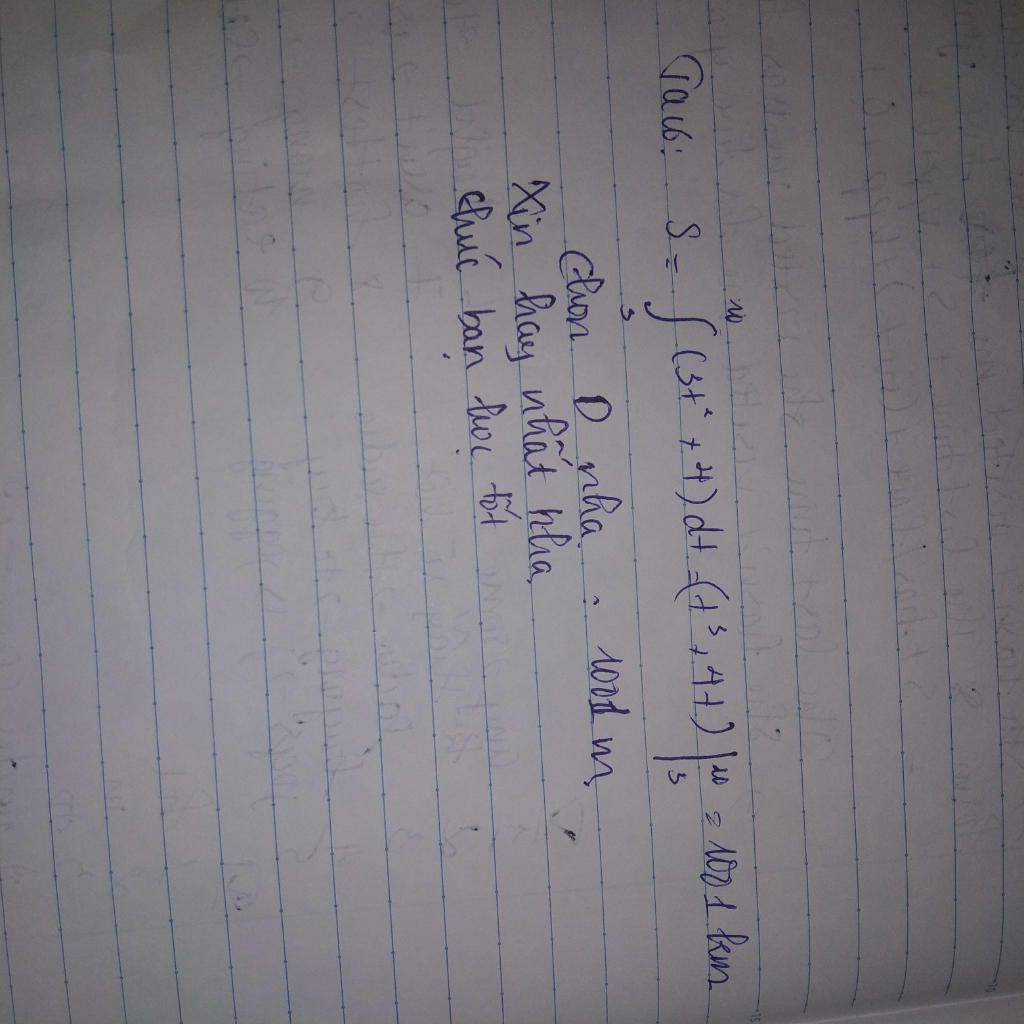 Ta có: S = ∫₃¹⁰ (3t² + 4)dt = (t³ + 4t) |₃¹⁰ = 1001 km
Chọn D nha : 1001 m
Xin hay nhất nha
chúc bạn học tốt